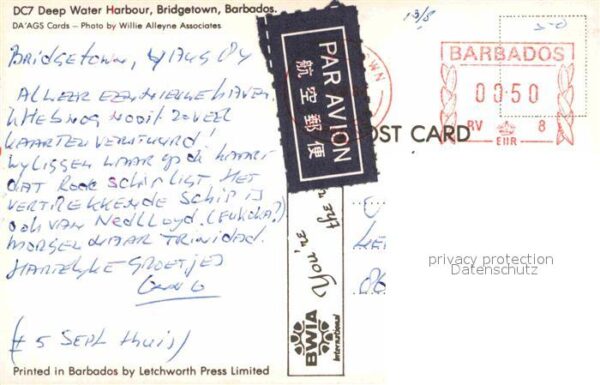 DC7 Deep Water Harbour, Bridgetown, Barbados.
DA'AGS Cards – Photo by Willie Alleyne Associates.
Bridgetown, 4 Aug 84
ALWEER EEN NIEUWE HAVEN.
'K HEB NOG NOOIT ZOVEEL
KAARTEN VERSTUURD!
WY LIGGEN WAAR OP DE KAART
DAT RODE SCHIP LIGT. HET
VERTREKKENDE SCHIP IS
OOK VAN NEDLLOYD.
MORGEN NAAR TRINIDAD.
HARTELYKE GROETJES
(± 5 SEPT thuis)
Printed in Barbados by Letchworth Press Limited
PAR AVION
航空郵便
BWIA
International
You're
the
13/8
BARBADOS
00.50
RV 8
EIIR
POST CARD
privacy protection
Datenschutz